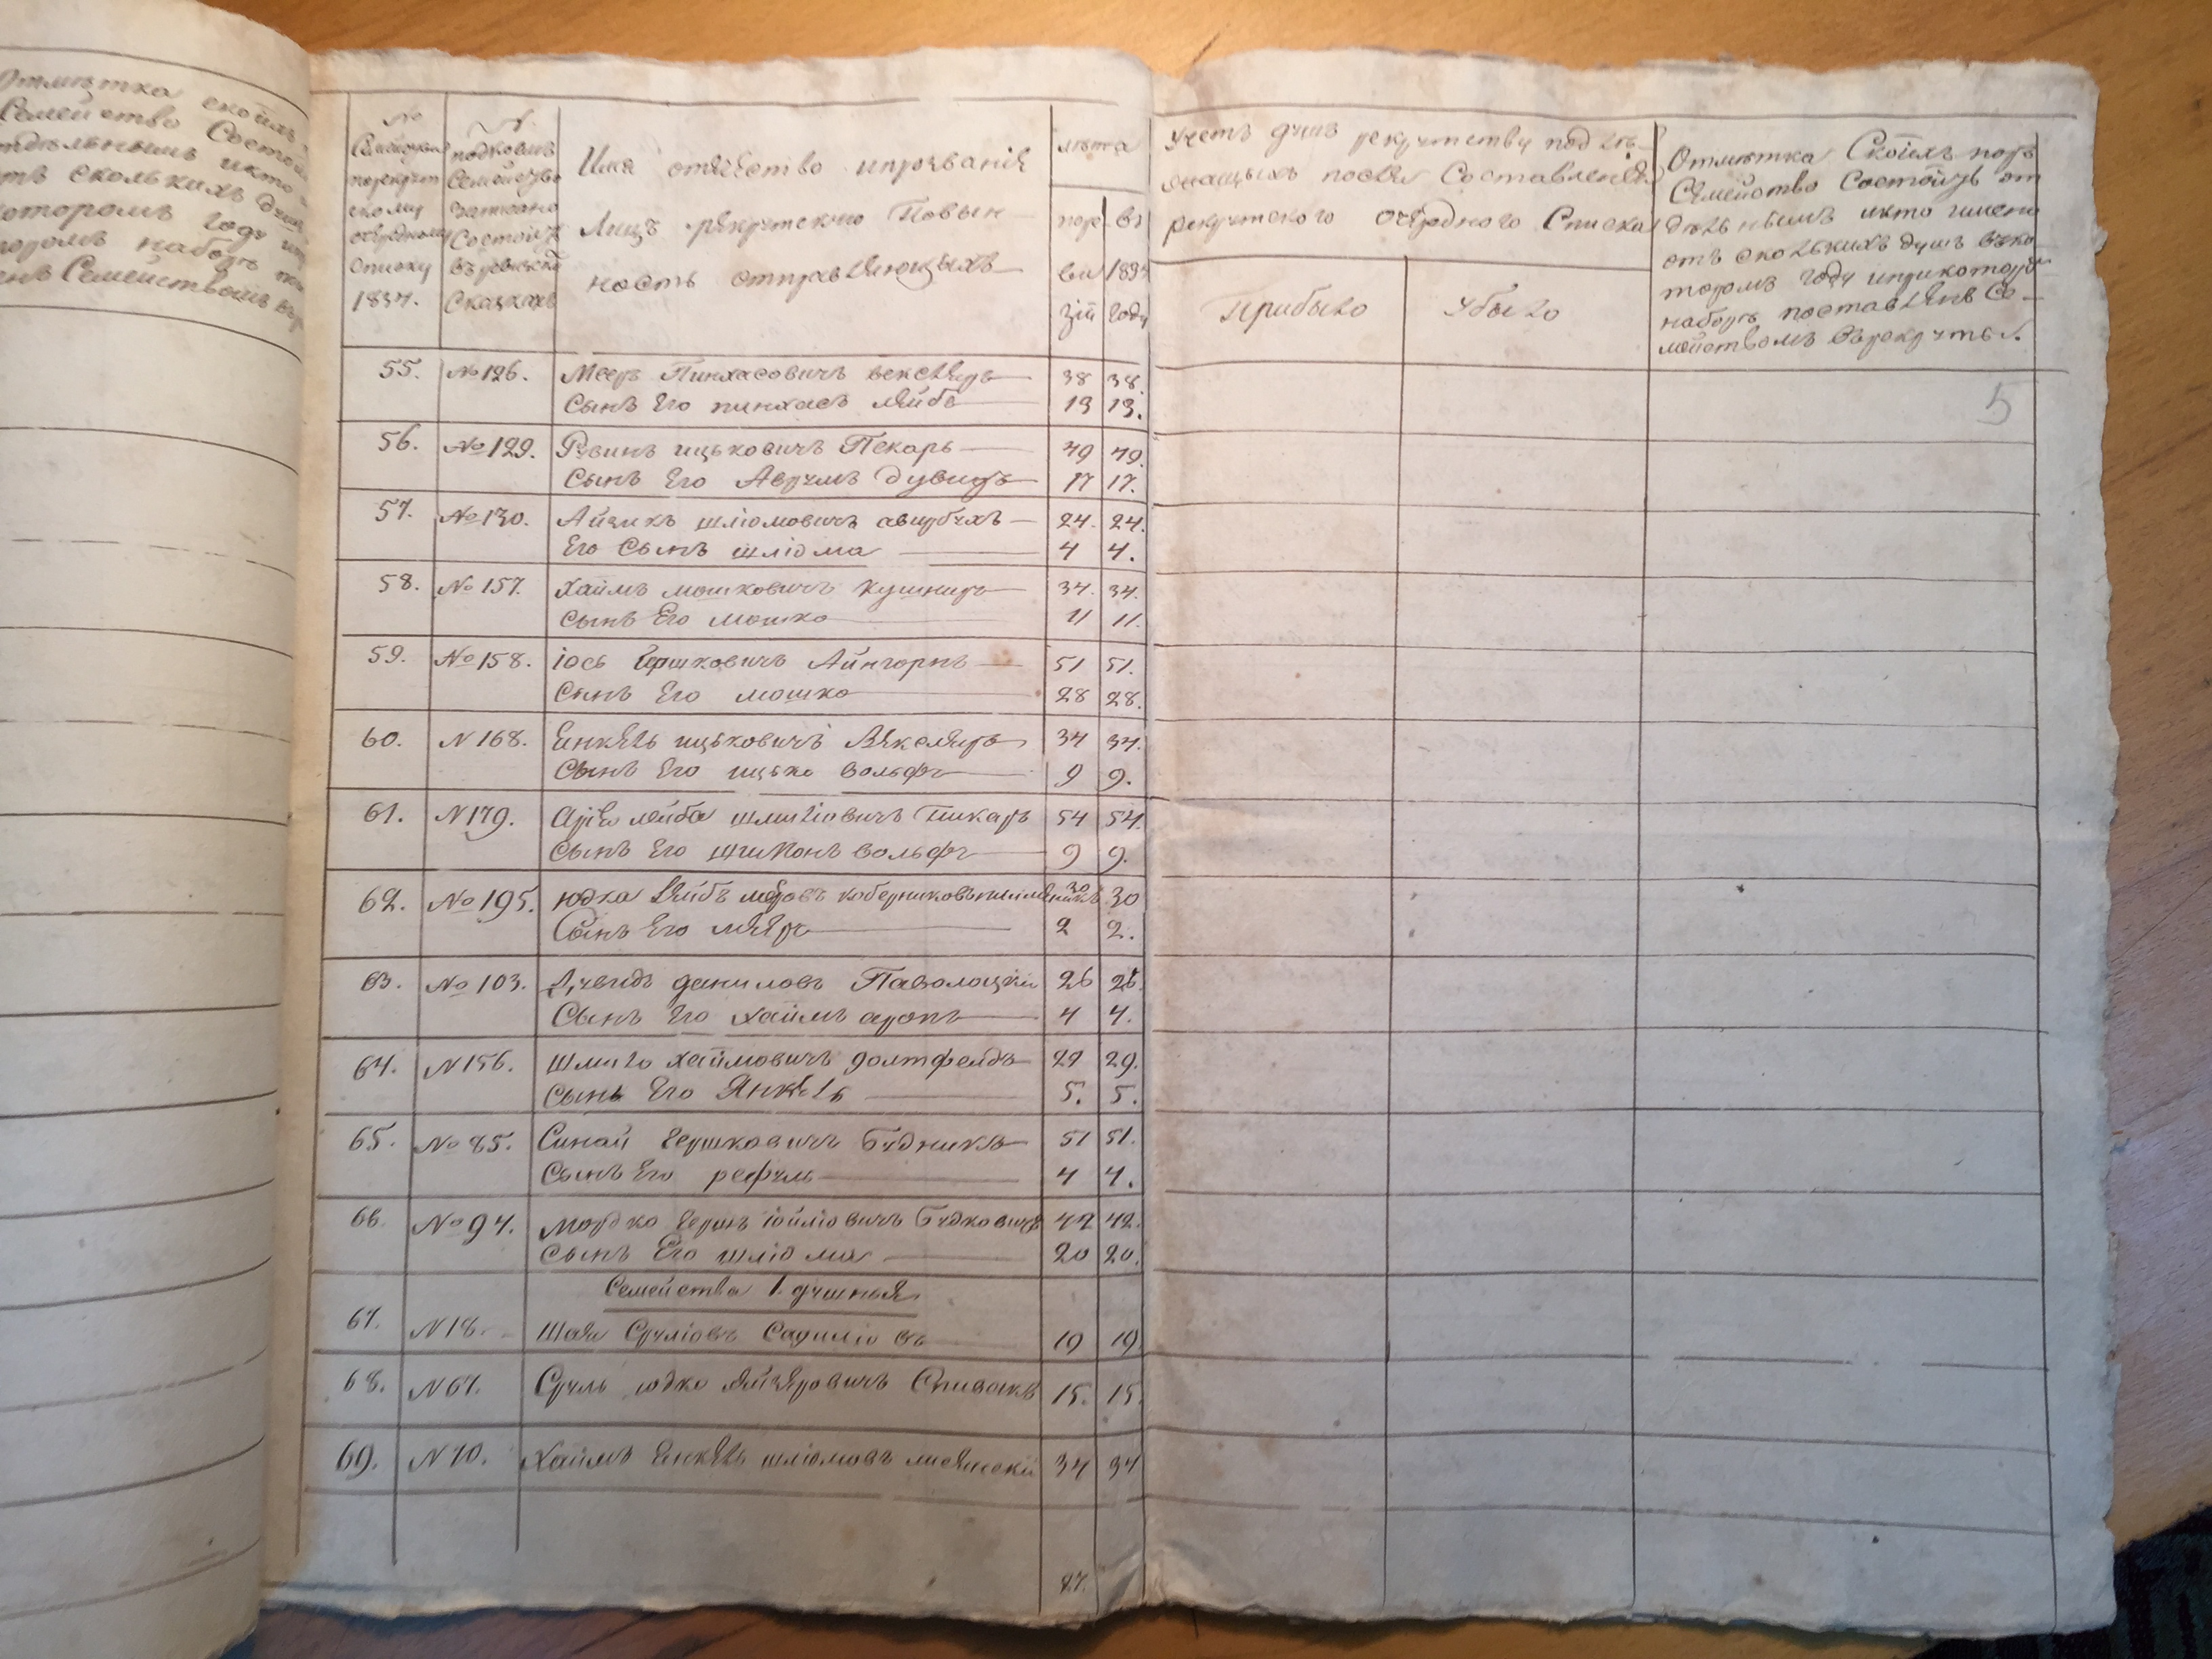 Отмѣтка скоихъ
Семейство Состои
№
Семейства
по рекрут
скому
очередному
списку
1834.
№
подкоимъ
Семейство
записано
Состоитъ
въ ревизской
Сказкахъ
Имя отчество ипрозванія
Лицъ рекрутскую Повин
ность отправляющихъ
лѣта
порѣ
ви
зіи
въ
1834
году
Учетъ душъ рекрутству подле
жащыхъ послѣ Составленія
рекрутского очередного Списка
Прибыло
убыло
Отмѣтка Скоихъ поръ
Семейство Состоитъ от
дѣльнымъ икто имено
отъ сколькихъ душъ въко
торомъ году ипри котором
наборѣ поставленъ Се
мействомъ Врекруты.
5
55. №126. Меер Пинхасовичъ векслеръ 38 38.
Сынъ Его пинхасъ лейбъ 13 13.
56. №129. Рвинъ ицьковичъ Пекарь 49 49.
Сынъ Его Аврумъ дувидъ 17 17.
57. №130. Айзикъ шліомовичъ авирбухъ 24. 24.
Его Сынъ шліома 4 4.
58. №157. Хаимъ мошковичъ Кушниръ 34. 34.
Сынъ Его мошко 11 11.
59. №158. іось Гершковичъ Айнгорнъ 51 51.
Сынъ Его мошко 28 28.
60. N168. Енкель ицьковичъ Векслеръ 34 34.
Сынъ Его ицько вольфъ 9 9.
61. N179. Аріе лейба шмиліовичъ Пикаръ 54 54.
Сынъ Его шимонъ вольфъ 9 9.
62. №195. юдка Лейбъ мееровъ коберниковъ племенникъ 30 30
Сынъ Его меер 2 2.
63. №103. Дувидъ даниловъ Паволоцкій 26 26.
Сынъ Его Хаимъ аронъ 4 4.
64. N156. Шмило хаймовичъ долтфелдъ 29 29.
Сынъ Его Янкель 5. 5.
65. №85. Синай Гершковичъ Будникъ 51 51.
Сынъ Его рефуль 4 4.
66. №94. Мордко Гершъ іойліовичъ Будковичъ 42 42.
Сынъ Его шліома 20 20.
Семейства 1 душныя
67. N18. Шая Сруліовъ Садиліовъ 19 19
68. N67. Сруль юдко лейзеровичъ Спивакъ 15. 15.
69. N70. Хаимъ Енкель шліомовъ лисянскій 34 34
27.